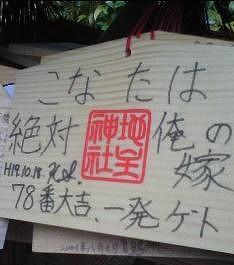 こなたは
絶対 俺の嫁
地主神社
H19.10.18.
78番大吉、一発ゲト